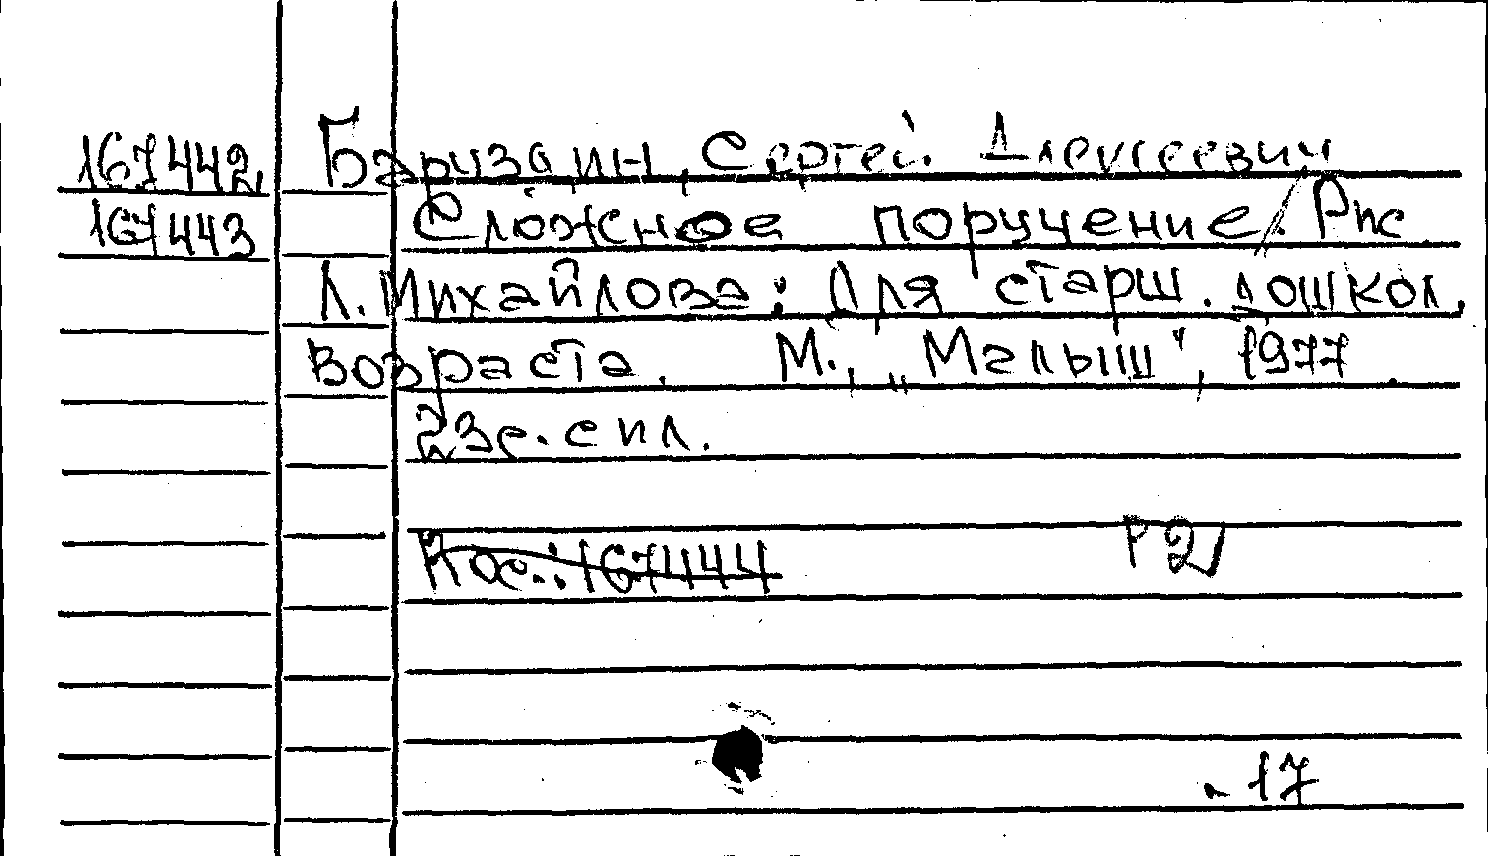 167442, Баруздин, Сергей Алексеевич
167443 Сложное поручение. / Рис.
Л. Михайлова: Для старш. дошкол.
возраста. М., „Малыш", 1977.
23с. с ил.
Кос.: 167444
Р2
17